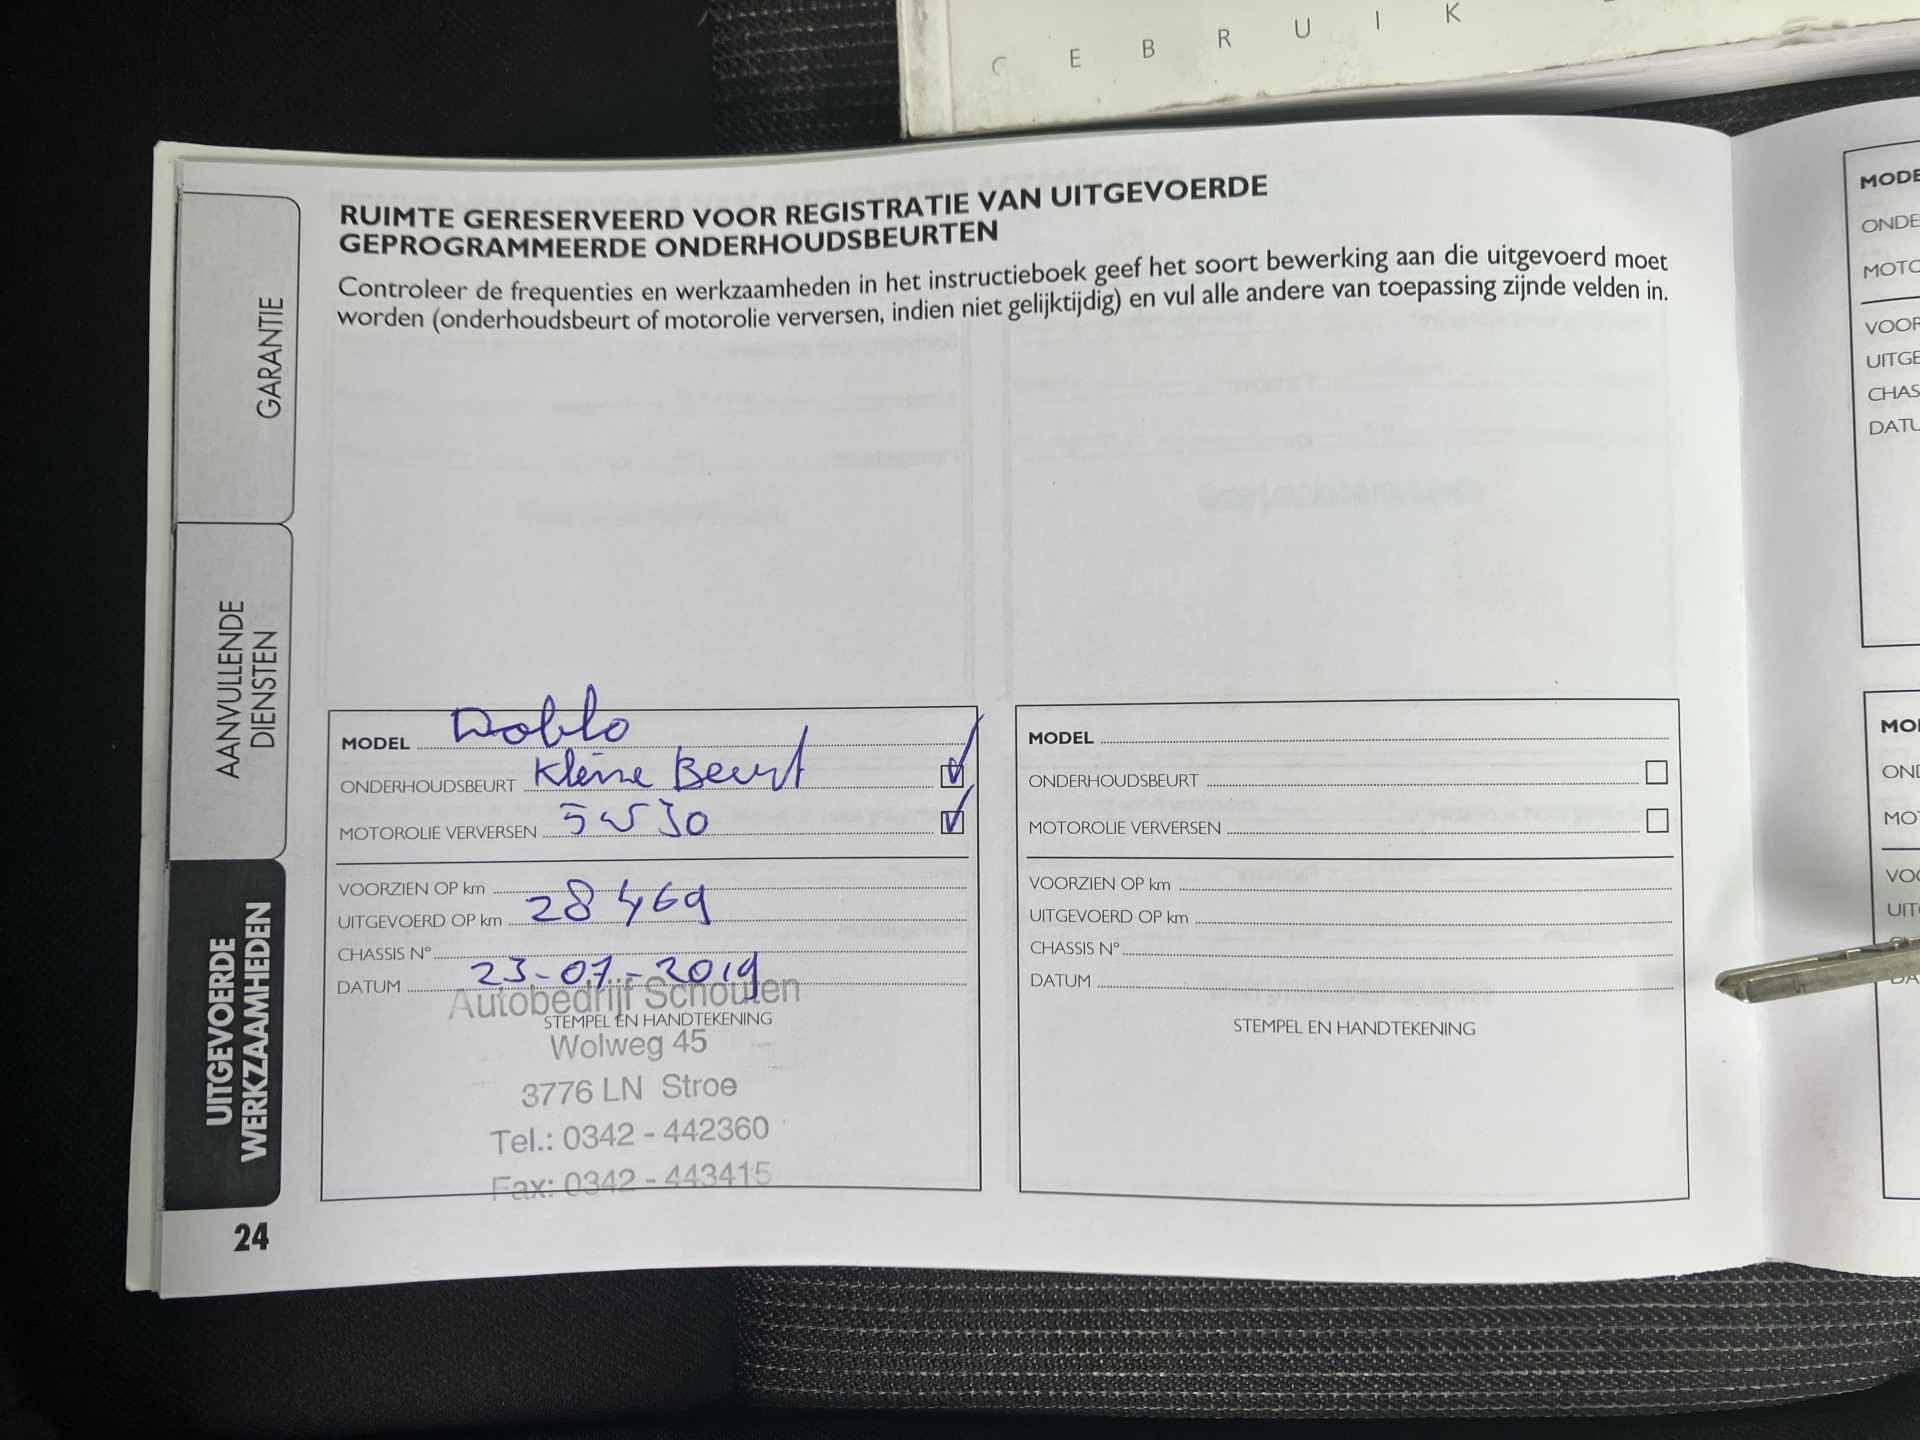 G E B R U I K
RUIMTE GERESERVEERD VOOR REGISTRATIE VAN UITGEVOERDE
GEPROGRAMMEERDE ONDERHOUDSBEURTEN
Controleer de frequenties en werkzaamheden in het instructieboek geef het soort bewerking aan die uitgevoerd moet
worden (onderhoudsbeurt of motorolie verversen, indien niet gelijktijdig) en vul alle andere van toepassing zijnde velden in.
GARANTIE
AANVULLENDE
DIENSTEN
UITGEVOERDE
WERKZAAMHEDEN
24
MODEL Doblo
ONDERHOUDSBEURT Kleine Beurt
MOTOROLIE VERVERSEN 5W30
VOORZIEN OP km
UITGEVOERD OP km 28469
CHASSIS N°
DATUM 23-07-2019
Autobedrijf Schouten
STEMPEL EN HANDTEKENING
Wolweg 45
3776 LN Stroe
Tel.: 0342 - 442360
Fax: 0342 - 443415
MODEL
ONDERHOUDSBEURT
MOTOROLIE VERVERSEN
VOORZIEN OP km
UITGEVOERD OP km
CHASSIS N°
DATUM
STEMPEL EN HANDTEKENING
MODE
ONDE
MOTO
VOOR
UITGE
CHAS
DATU
MO
OND
MO
VOO
UIT
DA